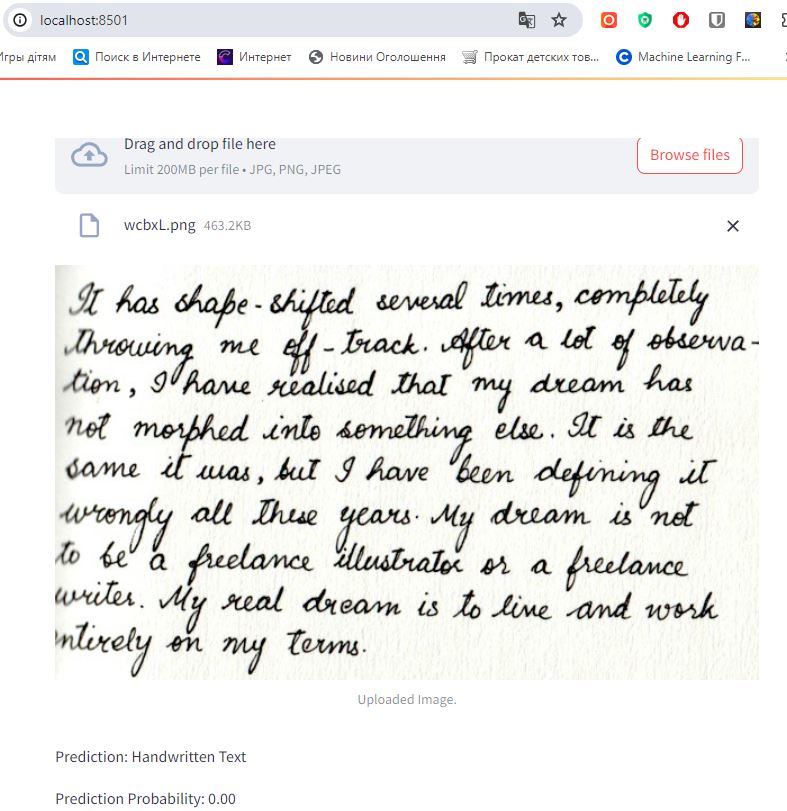 localhost:8501
Игры дітям
Поиск в Интернете
Интернет
Новини Оголошення
Прокат детских тов...
Machine Learning F...
Drag and drop file here
Limit 200MB per file • JPG, PNG, JPEG
Browse files
wcbxL.png 463.2KB
It has shape-shifted several times, completely
throwing me off-track. After a lot of observa-
tion, I have realised that my dream has
not morphed into something else. It is the
same it was, but I have been defining it
wrongly all these years. My dream is not
to be a freelance illustrator or a freelance
writer. My real dream is to live and work
ntirely on my terms.
Uploaded Image.
Prediction: Handwritten Text
Prediction Probability: 0.00